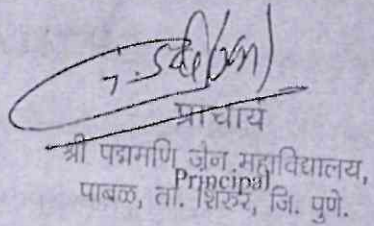 प्राचार्य
श्री पद्ममणि जैन महाविद्यालय,
Principal
पाबळ, ता. शिरुर, जि. पुणे.